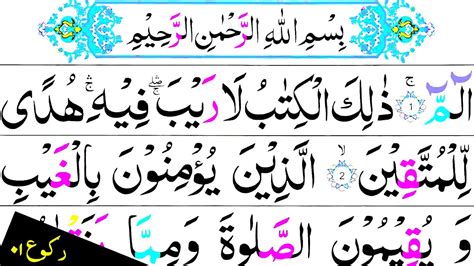 بِسْمِ اللهِ الرَّحْمٰنِ الرَّحِيْمِ
الٓمّٓ ۚ ١ ذٰلِكَ الْكِتٰبُ لَا رَيْبَ ۛۖ فِيْهِ ۛۚ هُدًى
لِّلْمُتَّقِيْنَ ۙ 2 الَّذِيْنَ يُؤْمِنُوْنَ بِالْغَيْبِ
وَ يُقِيْمُوْنَ الصَّلٰوةَ وَمِمَّا
ركوع ٠١